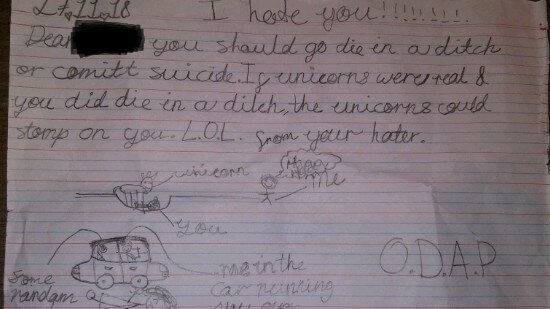 27.11.18 I hate you!!!!!!!!
Dear you should go die in a ditch
or comitt suicide. If unicorns were real &
you did die in a ditch, the unicorns could
stomp on you. L.O.L. from your hater.
unicorn
me
you
O.D.A.P
some
randam
me in the
car running